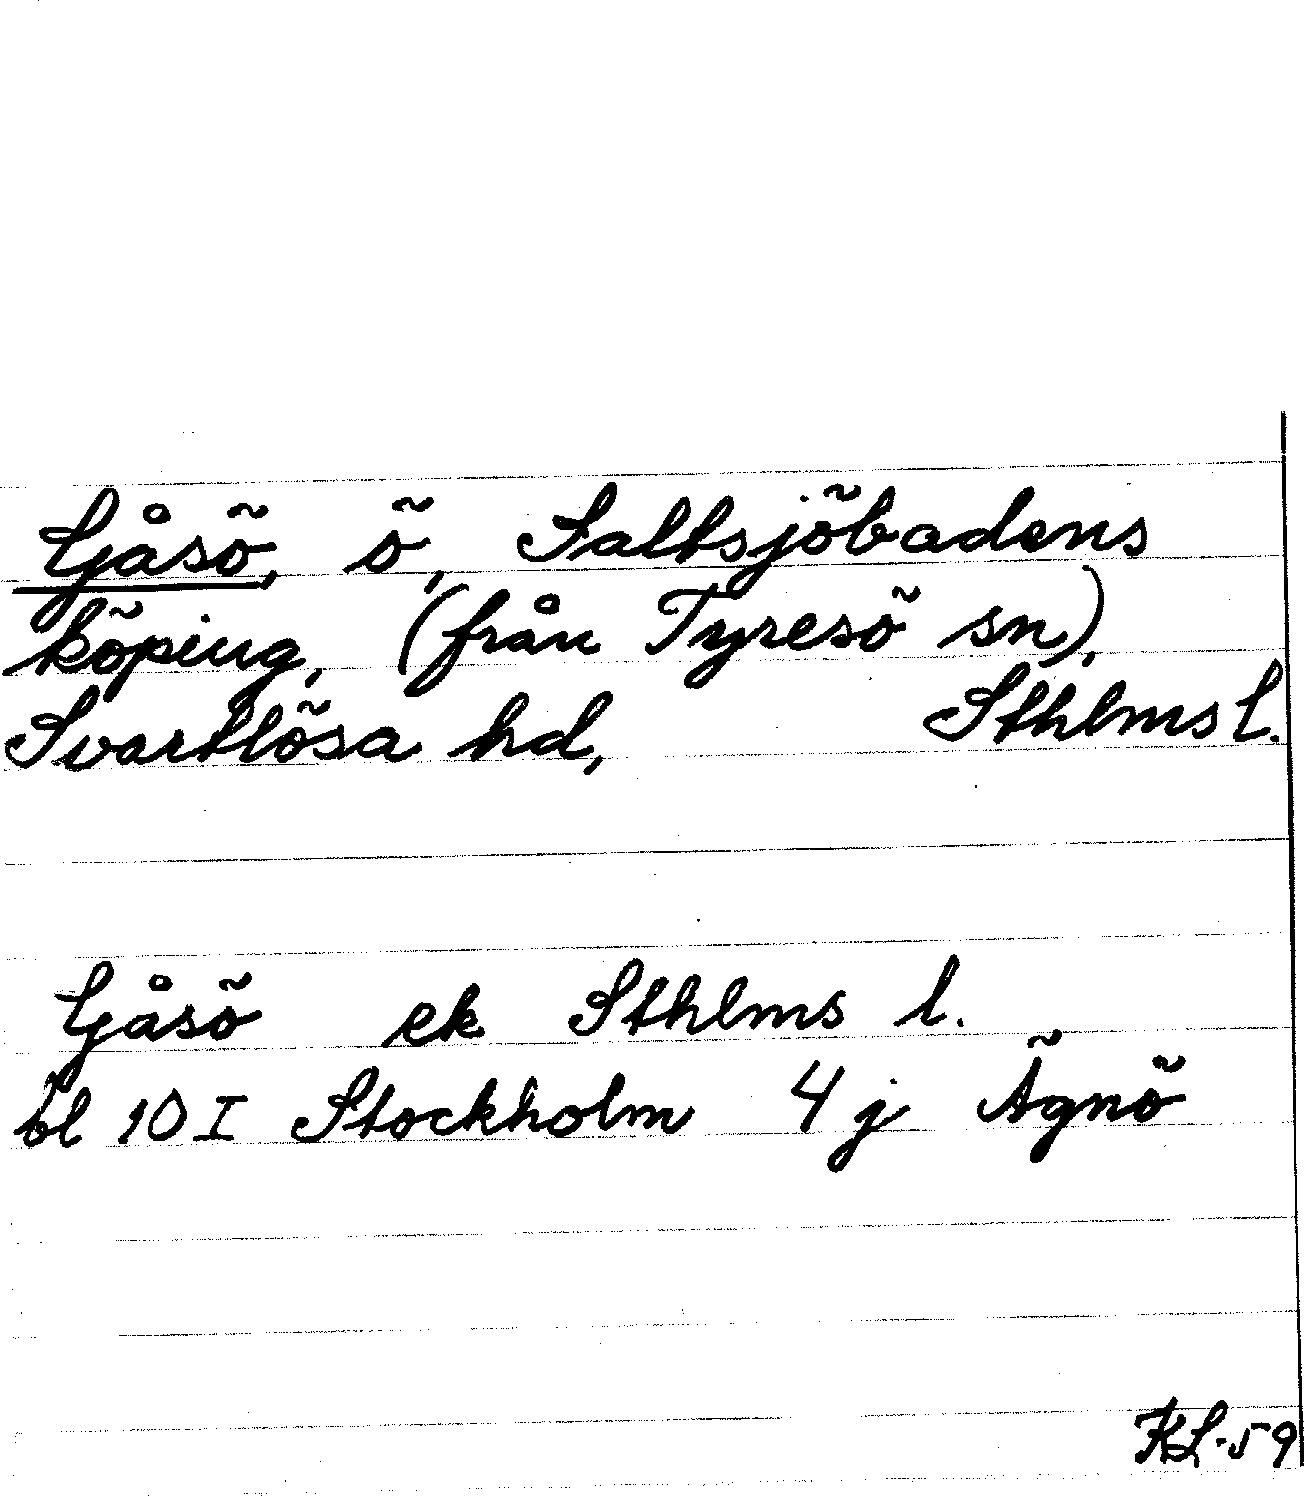 Gåsö, ö, Saltsjöbadens
köping, (från Tyresö sn),
Svartlösa hd, Sthlms l.
Gåsö ek Sthlms l.
bl 10 I Stockholm 4 j Ägnö
KL-59